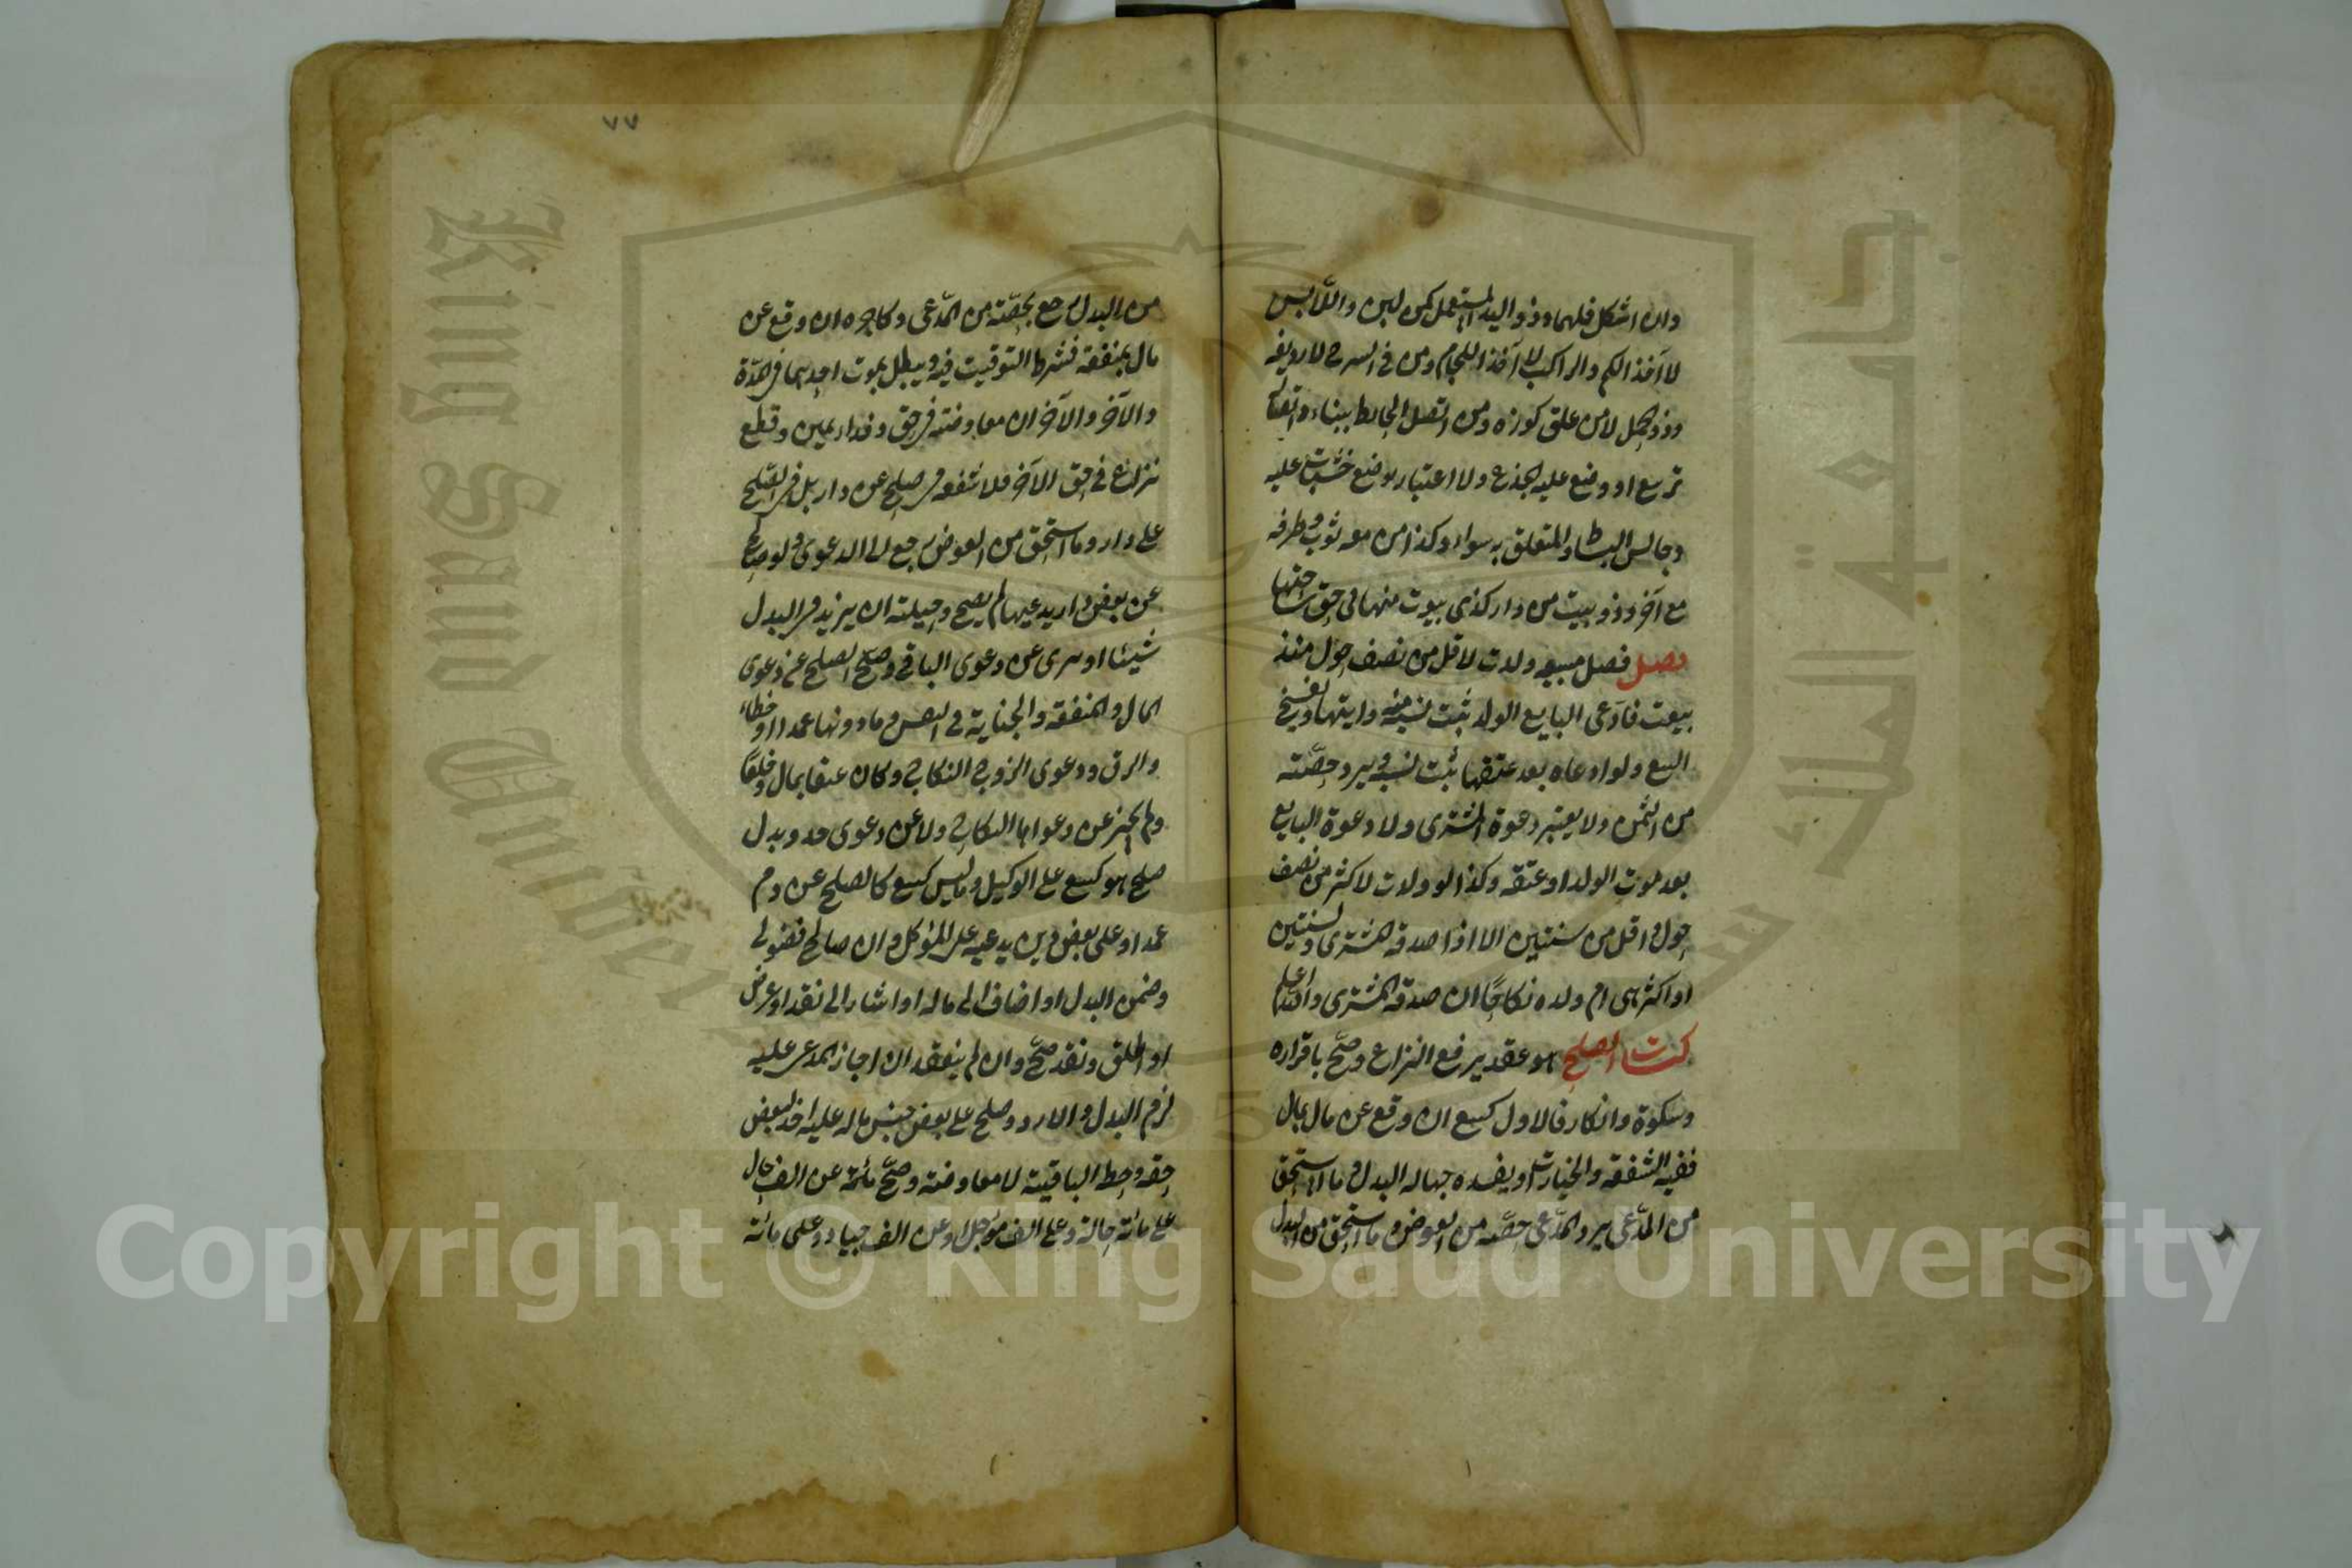 وان اشكل فلهما وذو اليد المستعمل كمن لبن واللابس
لا آخذ الكم والراكب لا آخذ اللجام ومن في السرج لا رديفه
وذو حمل لا من علق كوزه ومن اتصل الحايط ببناءه اتصال
تربيع او وضع عليه الجذع ولا اعتبار بوضع خشبات عليه
وجالس البساط والمتعلق به سواء وكذا من معه ثوب وطرفه
مع آخر وذو بيت من دار كذي بيوت منها في حق ساحتها
فصل فصل مبيعه ولدت لاقل من نصف حول منذ
بيعت فادعى البايع الولد ثبت نسبه منه واميتها ويفسخ
البيع ولو ادعاه بعد عتقها ثبت نسبه ويرد حصته
من الثمن ولا يعتبر دعوة المشتري ولا دعوة البايع
بعد موت الولد او عتقه وكذا لو ولدت لاكثر من نصف
حول واقل من سنتين الا اذا صدقه المشتري ولسنتين
او اكثر هي ام ولده نكاحا ان صدقه المشتري والله اعلم
كتاب الصلح هو عقد يرفع النزاع وصح باقراره
وسكوة وانكار فالاول كبيع ان وقع عن مال بمال
ففيه الشفعة والخيارات ويفسده جهالة البدل وما استحق
من المدعى يرد المدعى حصته من العوض وما استحق من البدل
٧٧
من البدل يرجع بحصته من المدعى وكاجره ان وقع عن
مال بمنفعة فشرط التوقيت فيه ويبطل بموت احدهما في المدة
والآخر والآخر ان معاوضة في حق وفداء يمين وقطع
نزاع في حق الآخر فلا شفعة في صلح عن دار بل في الصلح
على دار وما استحق من العوض يرجع الى الدعوى ولو صالح
عن بعض دار يدعيها لم يصح وحيلته ان يزيد في البدل
شيئا او يبرى عن دعوى الباقي وصح الصلح عن دعوى
المال والمنفعة والجناية في النفس وما دونها عمدا او خطاء
والرق ودعوى الزوج النكاح وكان عتقا بمال وخلعا
ولم يجز عن دعواها النكاح ولا عن دعوى حد وبدل
صلح هو كبيع على الوكيل وما ليس كبيع كالصلح عن دم
عمد او على بعض دين يدعيه على الموكل وان صالح فضولي
وضمن البدل او اضاف الى ماله او اشار الى نقد او عرض
او اطلق ونقد صح وان لم ينقد ان اجاز المدعى عليه
لزم البدل والا رد وصلح على بعض جنس ماله عليه اخذ لبعض
حقه وحط الباقية لا معاوضة وصح مائة عن الف حال
على مائة حالة وعلى الف مؤجل او عن الف جياد وعلى مائة
King Saud University
جامعة الملك سعود
Copyright © King Saud University